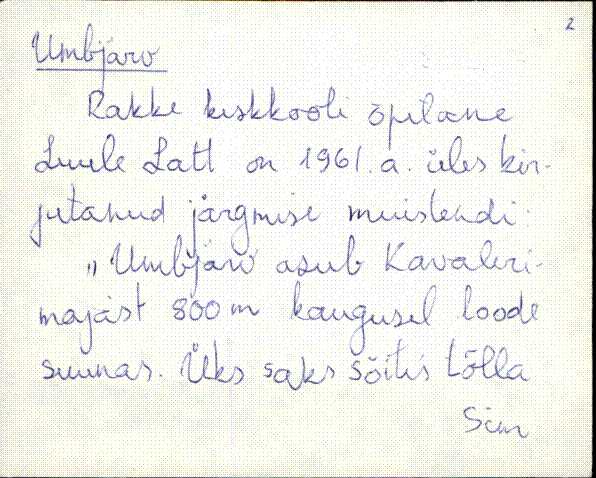 2
Umbjärv
Rakke keskkooli õpilane
Luule Latt on 1961. a. üles kir-
jutanud järgmise muistendi:
„Umbjärv asub Kavaleri-
majast 800 m kaugusel loode
suunas. Üks saks sõitis tõlla